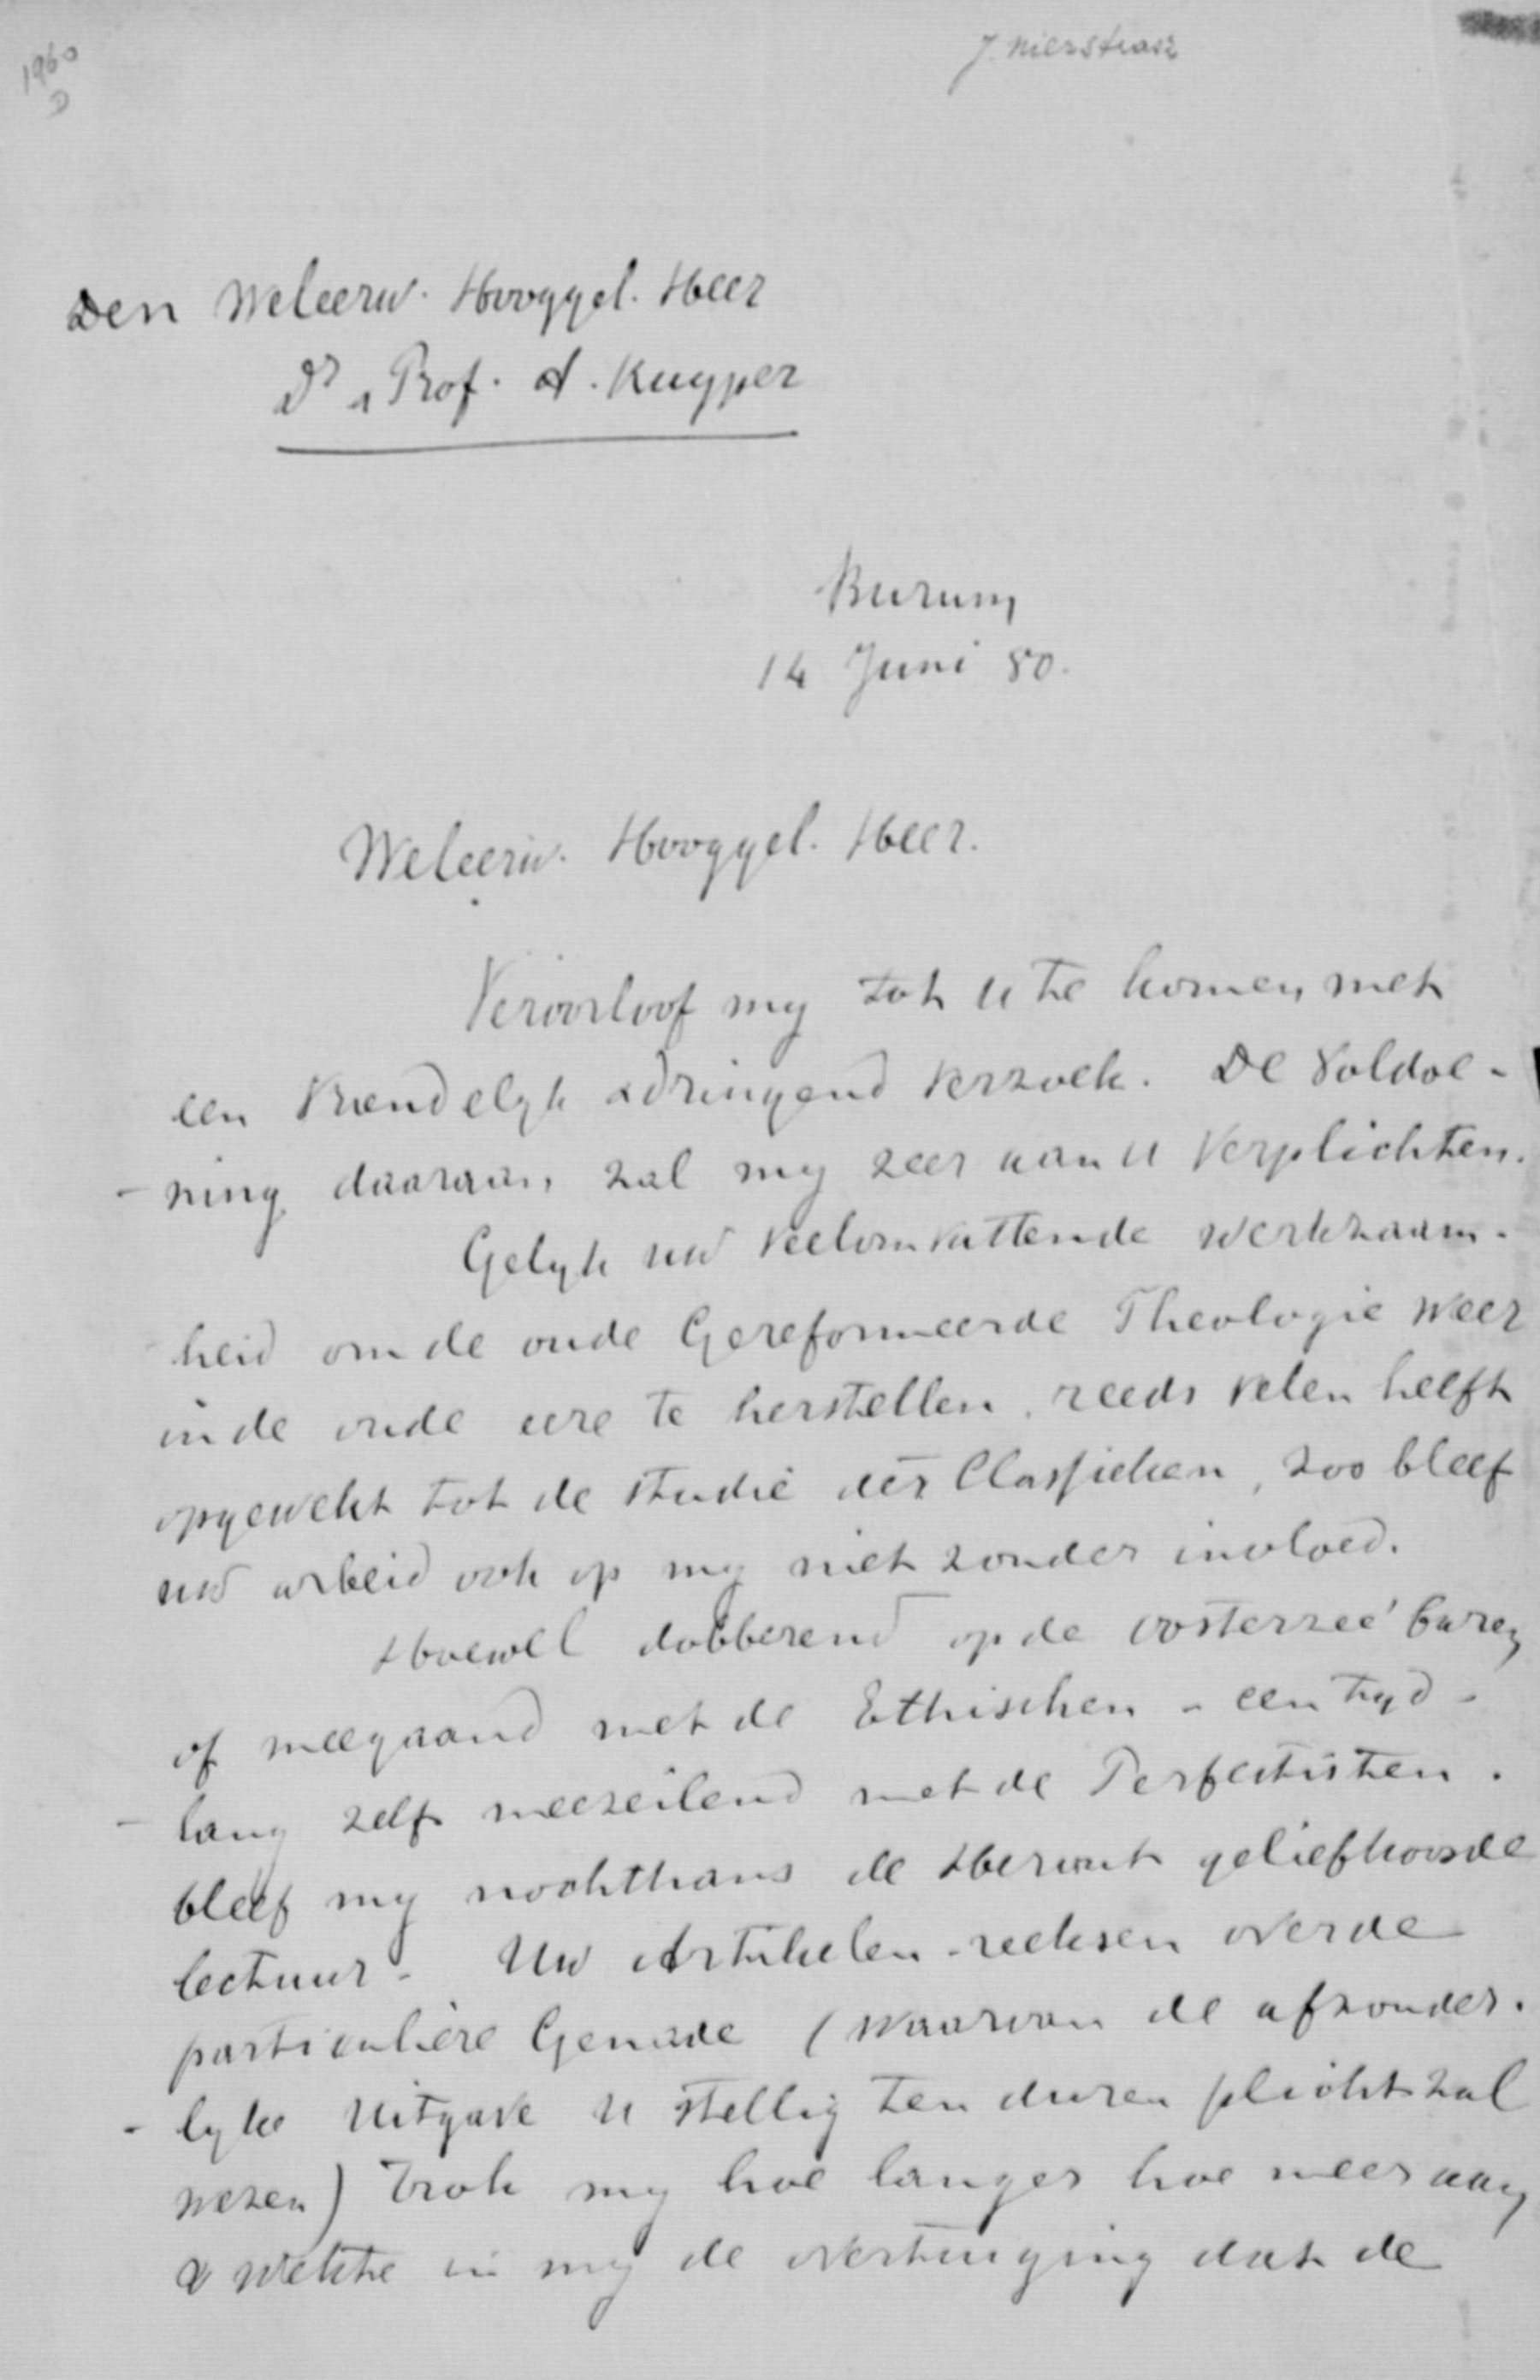 1960
D
J. Nierstrasz
Den Weleerw. Hooggel. Heer
Dr & Prof. A. Kuyper
Burum
14 Juni 80.
Weleerw. Hooggel. Heer.
Veroorloof my tot U te komen met
een vriendelyk & dringend verzoek. De Voldoe-
-ning daaraan zal my zeer aan U verplichten.
Gelyk uw veelomvattende werkzaam-
heid om de oude Gereformeerde Theologie weer
in de oude eere te herstellen, reeds velen heeft
opgewekt tot de studie der Classieken, zoo bleef
uw arbeid ook op my niet zonder invloed.
Hoewel dobberend op de Oosterzee'
of meegaand met de Ethischen - een tyd-
-lang zelfs meezeilend met de Perfectisten.
bleef my nochthans de Heraut geliefkoosde
lectuur. Uw Artikelen-reeksen over de
particuliere Genade (waarvan de afzonder-
-lyke uitgave U stellig ten duren plicht zal
wezen) trok my hoe langer hoe meer aan
& wekte in my de overtuiging dat de